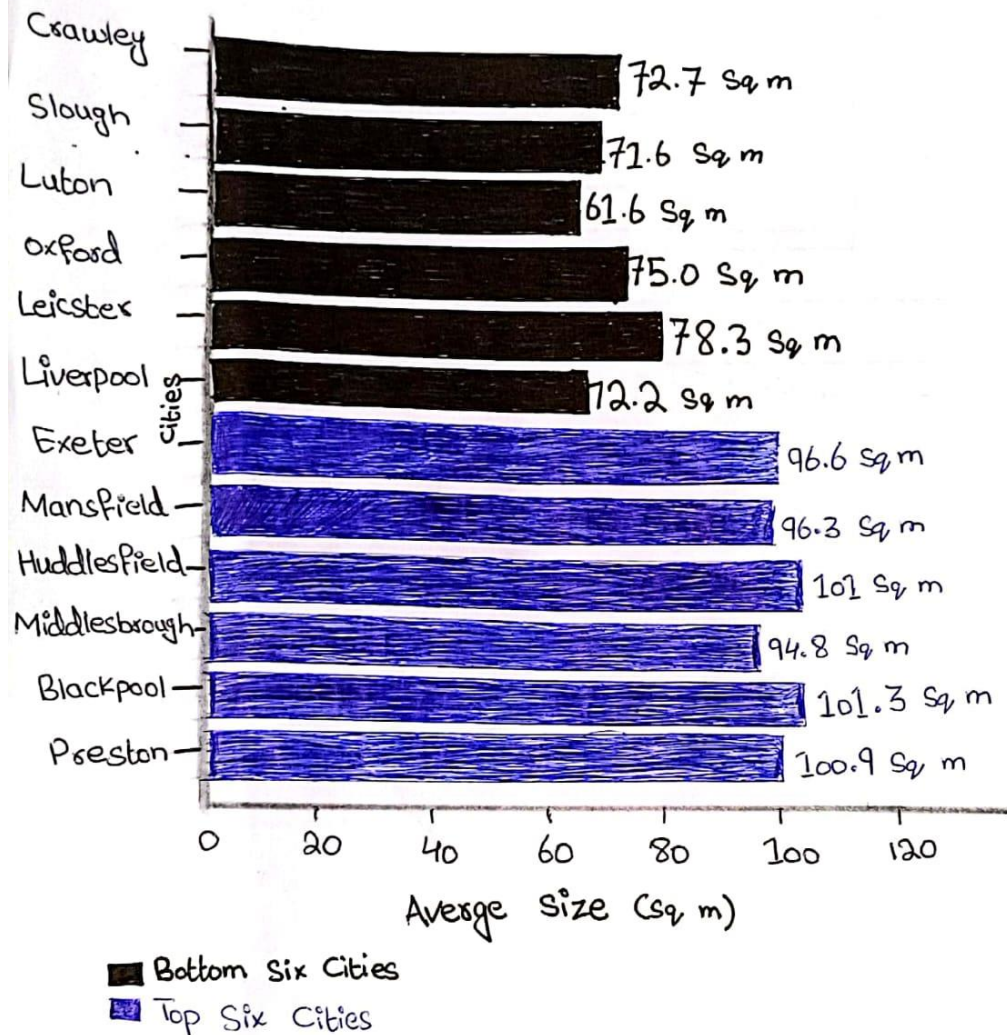 Crawley
72.7 Sq m
Slough
71.6 Sq m
Luton
61.6 Sq m
Oxford
75.0 Sq m
Leicster
78.3 Sq m
Liverpool
72.2 Sq m
Cities
Exeter
96.6 Sq m
Mansfield
96.3 Sq m
Huddlesfield
101 Sq m
Middlesbrough
94.8 Sq m
Blackpool
101.3 Sq m
Preston
100.9 Sq m
0 20 40 60 80 100 120
Averge Size (Sq m)
Bottom Six Cities
Top Six Cities